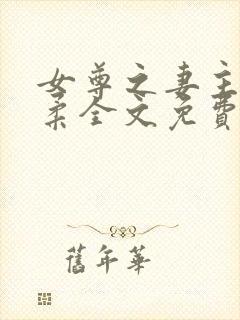 女尊之妻主
柔全文免費
舊年華